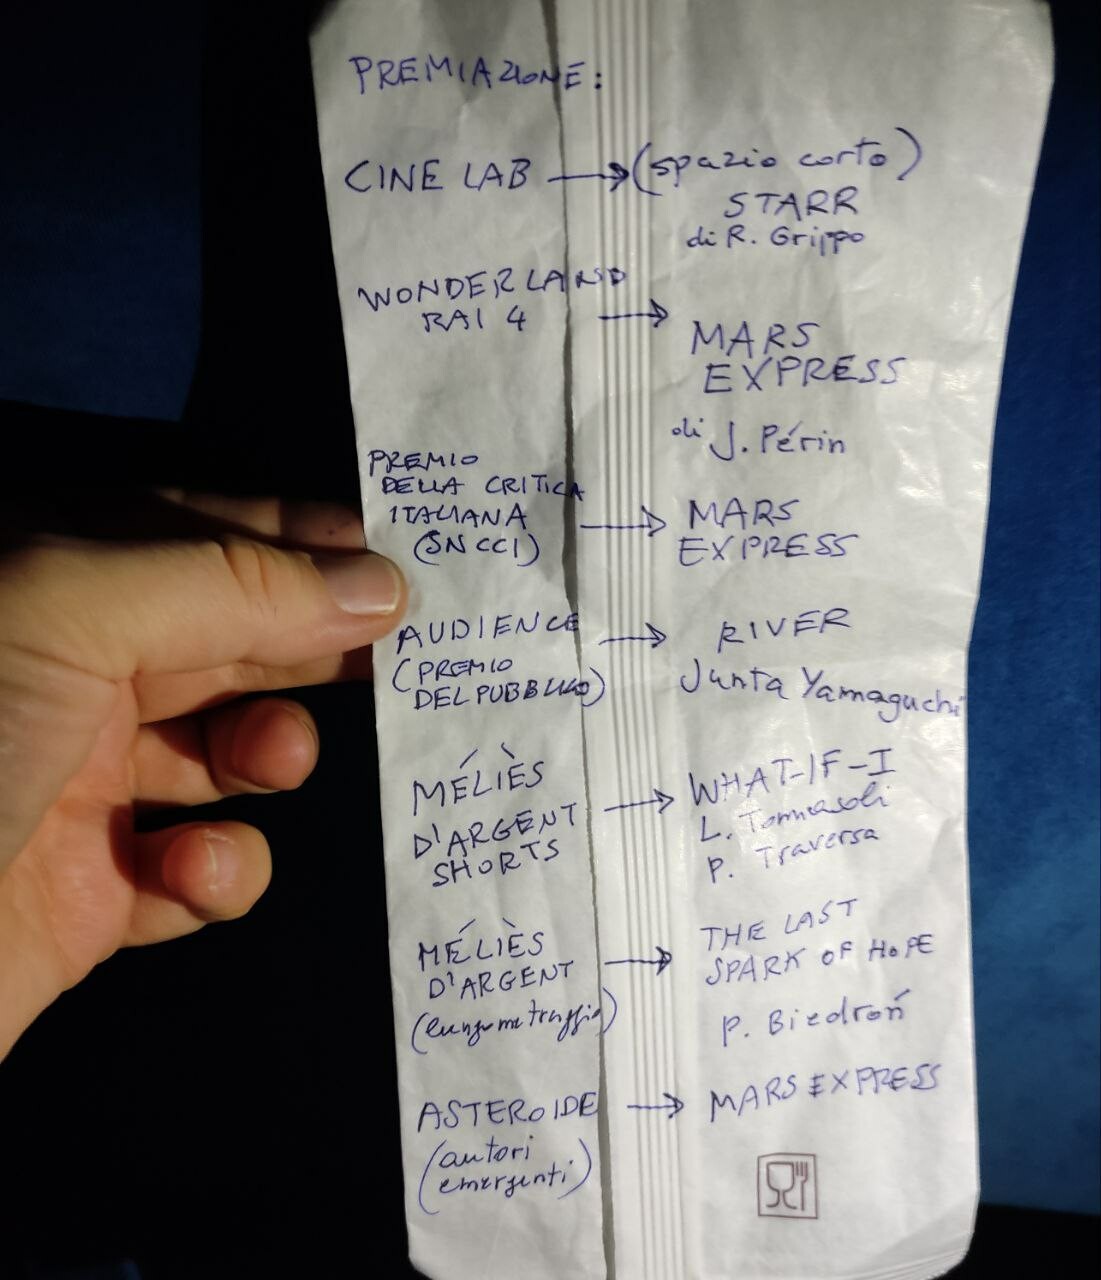 PREMIAZIONE:
CINE LAB → (spazio corto)
STARR
di R. Grippo
WONDERLAND
RAI 4 →
MARS
EXPRESS
di J. Périn
PREMIO
DELLA CRITICA
ITALIANA → MARS
(SNCCI) EXPRESS
AUDIENCE → RIVER
(PREMIO
DEL PUBBLICO) Junta Yamaguchi
MÉLIÈS
D'ARGENT → WHAT-IF-I
SHORTS L. Tommasoli
P. Traversa
MÉLIÈS → THE LAST
D'ARGENT SPARK OF HOPE
(lungometraggio) P. Biedroń
ASTEROIDE → MARS EXPRESS
(autori
emergenti)